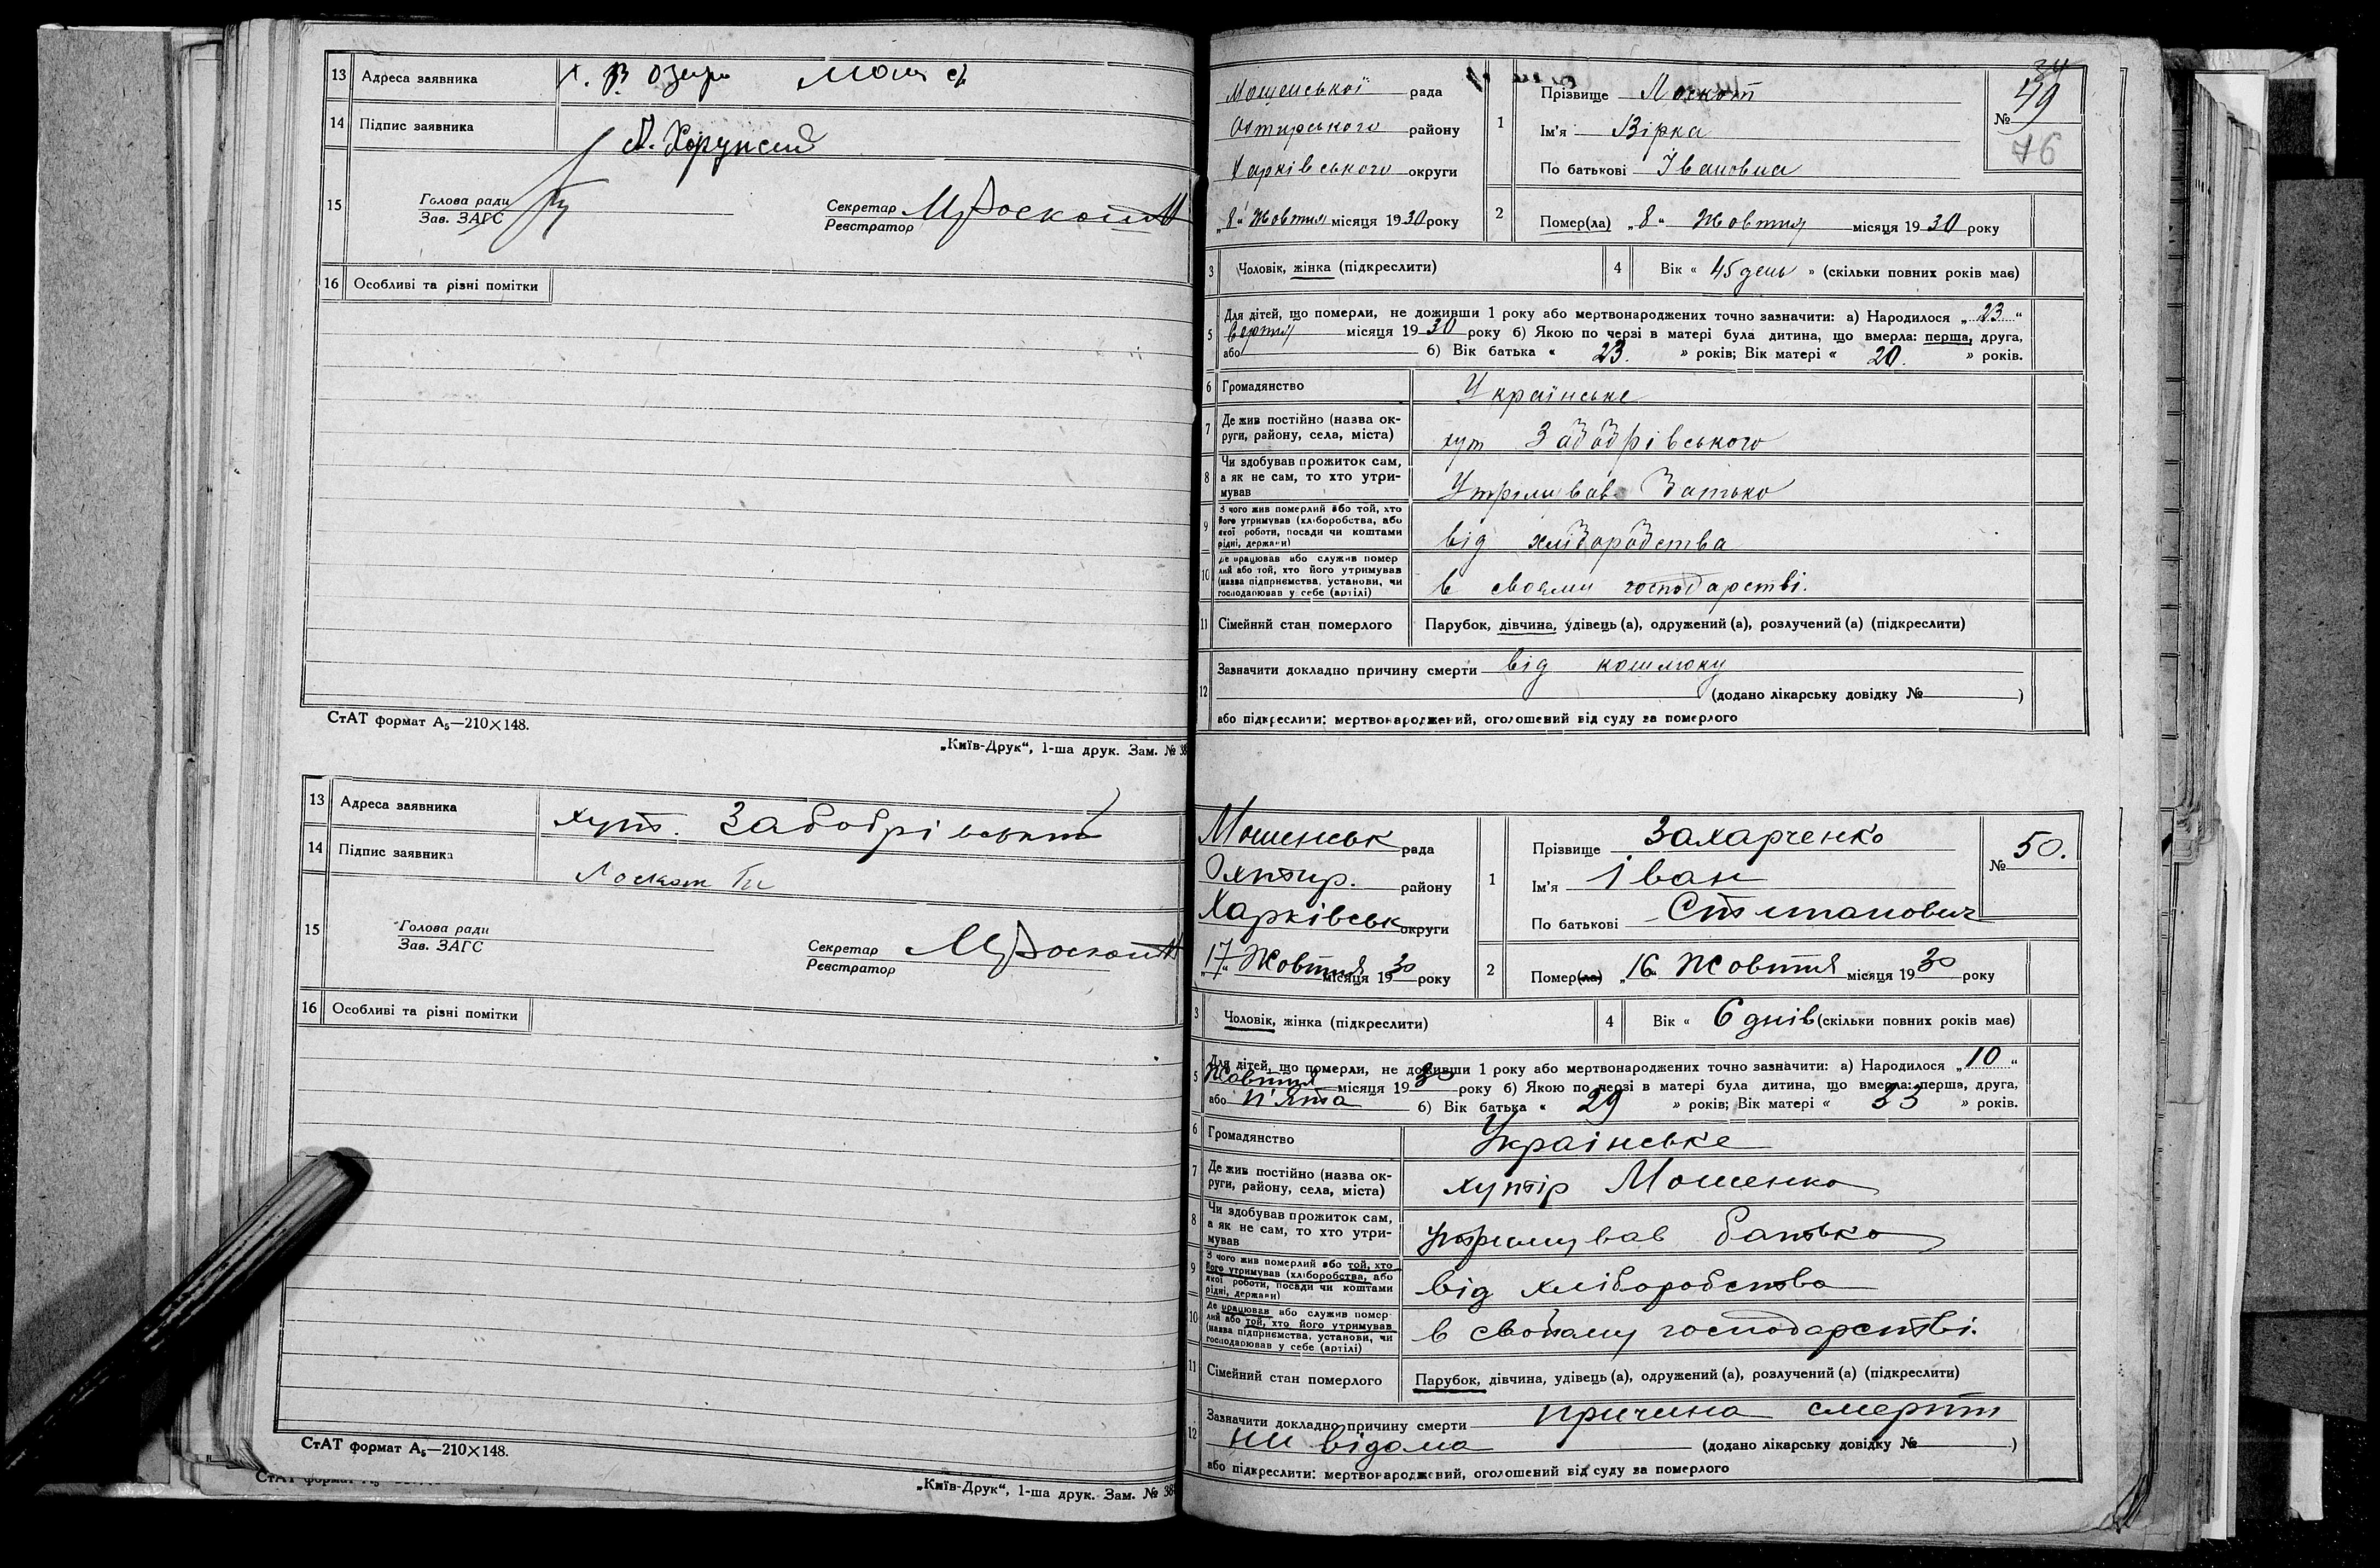 13 Адреса заявника х. В Озеро Мош с/
14 Підпис заявника Хорунсий
15 Голова ради
Зав. ЗАГС
Секретар М Лоскот
Реєстратор
16 Особливі та різні помітки
СтАТ формат А₅—210×148.
„Київ-Друк“, 1-ша друк. Зам. № 38
13 Адреса заявника хут. Забобрівський
14 Підпис заявника Лоскот
15 Голова ради
Зав. ЗАГС
Секретар М Лоскот
Реєстратор
16 Особливі та різні помітки
СтАТ формат А₅—210×148.
„Київ-Друк“, 1-ша друк. Зам. № 38
34
Мошенської рада
Охтирського району
Харківського округи
„8“ Жовтня місяця 1930 року
1 Прізвище Лоскот
Ім'я Вірка
По батькові Івановна
№ 49
76
2 Помер(ла) „8“ Жовтня місяця 1930 року
3 Чоловік, жінка (підкреслити)
4 Вік « 45 день » (скільки повних років має)
5 Для дітей, що померли, не доживши 1 року або мертвонароджених точно зазначити: а) Народилося „23“
вертня місяця 1930 року б) Якою по черзі в матері була дитина, що вмерла: перша, друга,
або б) Вік батька « 23. » років; Вік матері « 20. » років.
6 Громадянство Українське
7 Де жив постійно (назва ок-
руги, району, села, міста) хут Забобрівського
8 Чи здобував прожиток сам,
а як не сам, то хто утри-
мував Утримував Батько
9 З чого жив померлий або той, хто
його утримував (хліборобства, або
якої роботи, посади чи коштами
рідні, держави) від хліборобства
10 Де працював або служив помер
лий або той, хто його утримував
(назва підприємства, установи, чи
господарював у себе (артілі) в своєми господарстві.
11 Сімейний стан померлого Парубок, дівчина, удівець (а), одружений (а), розлучений (а) (підкреслити)
12 Зазначити докладно причину смерти від кошлюку
(додано лікарську довідку № )
або підкреслити: мертвонароджений, оголошений від суду за померлого
Мошенськ рада
Охтир. району
Харківськ округи
„17“ Жовтня місяця 1930 року
1 Прізвище Захарченко
Ім'я Іван
По батькові Степанович
№ 50.
2 Помер(ла) „16“ Жовтня місяця 1930 року
3 Чоловік, жінка (підкреслити)
4 Вік « 6 днів (скільки повних років має)
5 Для дітей, що померли, не доживши 1 року або мертвонароджених точно зазначити: а) Народилося „10“
Жовтня місяця 1930 року б) Якою по черзі в матері була дитина, що вмерла: перша, друга,
або п'ята б) Вік батька « 29 » років; Вік матері « 33 » років.
6 Громадянство Українське
7 Де жив постійно (назва ок-
руги, району, села, міста) хутір Мошенка
8 Чи здобував прожиток сам,
а як не сам, то хто утри-
мував утримував батько
9 З чого жив померлий або той, хто
його утримував (хліборобства, або
якої роботи, посади чи коштами
рідні, держави) від хліборобства
10 Де працював або служив помер
лий або той, хто його утримував
(назва підприємства, установи, чи
господарював у себе (артілі) в свойому господарстві.
11 Сімейний стан померлого Парубок, дівчина, удівець (а), одружений (а), розлучений (а) (підкреслити)
12 Зазначити докладно причину смерти причина смерти
ни відома (додано лікарську довідку № )
або підкреслити: мертвонароджений, оголошений від суду за померлого